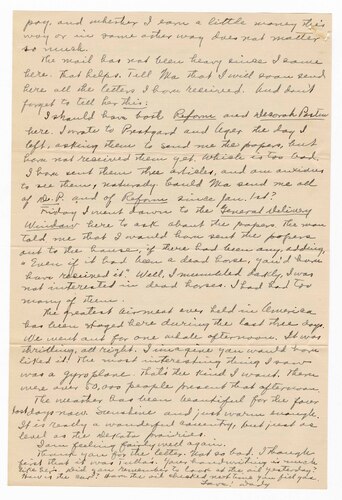 pay, and whether I earn a little money this
way or in some other way does not matter
so much.
The mail has not been heavy since I came
here. That helps. Tell Ma that I will soon send
her all the letters I have received. And don't
forget to tell her this:
I should have both Reform and Decorah Posten
here. I wrote to and Ager the day I
left, asking them to send me the papers, but
have not received them yet. Which is too bad.
I have sent them three articles, and am anxious
to see them, naturally. Could Ma send me all
of D.P. and of Reform since Jan. 1st?
Friday I went down to the General Delivery
Window here to ask about the papers. The man
told me that I would have sent the papers
out to the house, if there had been any, adding,
"Even if it had been a dead horse, you'd have
have received it." Well, I mumbled darkly, I was
not interested in dead horses. I had had too
many of them.
The greatest airmeet ever held in America
has been staged here during the last three days.
We went out for one whole afternoon. It was
thrilling, all right. I imagine you would have
liked it! The most interesting thing I saw
was a gyroplane. That's the kind I want. There
were over 60,000 people present that afternoon.
The weather has been beautiful for the four
last days now. Sunshine and just warm enough.
It is really a wonderful country, but just as
level as the Dakota prairies.
I am feeling fairly well again.
Thank you for the letter. Not so bad. I thought
first that it was Your handwriting is much
like hers. Did you remember to carry out the ashes yesterday?
How is the car? Have the oil checked next time you fill gas.
Love, Daddy